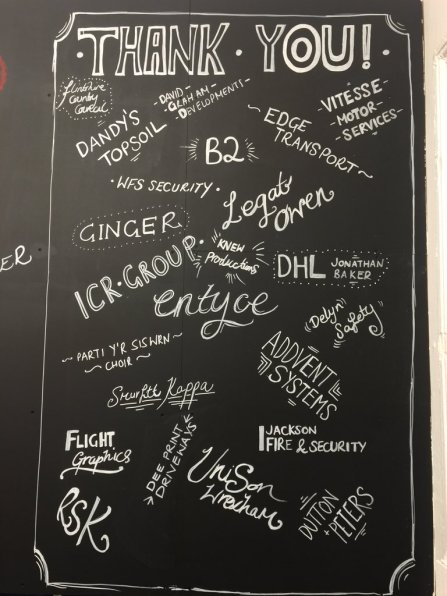 ·THANK·YOU!·
Flintshire
County
Council
-DAVID-
-GRAHAM-
-DEVELOPMENTS-
VITESSE
-MOTOR-
-SERVICES-
DANDY'S
TOPSOIL
~EDGE
TRANSPORT~
B2
·WFS SECURITY·
Legat
Owen
GINGER
ICR·GROUP·
KNEW
Productions
DHL JONATHAN
BAKER
entyce
Delyn
Safety
~ PARTI Y'R SISWRN
~ CHOIR ~
ADDVENT
SYSTEMS
Smurfit Kappa
FLIGHT
Graphics
DEE PRINT
DRIVEWAYS
JACKSON
FIRE & SECURITY
UniSon
Wrexham
RSK
DUTTON
+ PETERS
ER